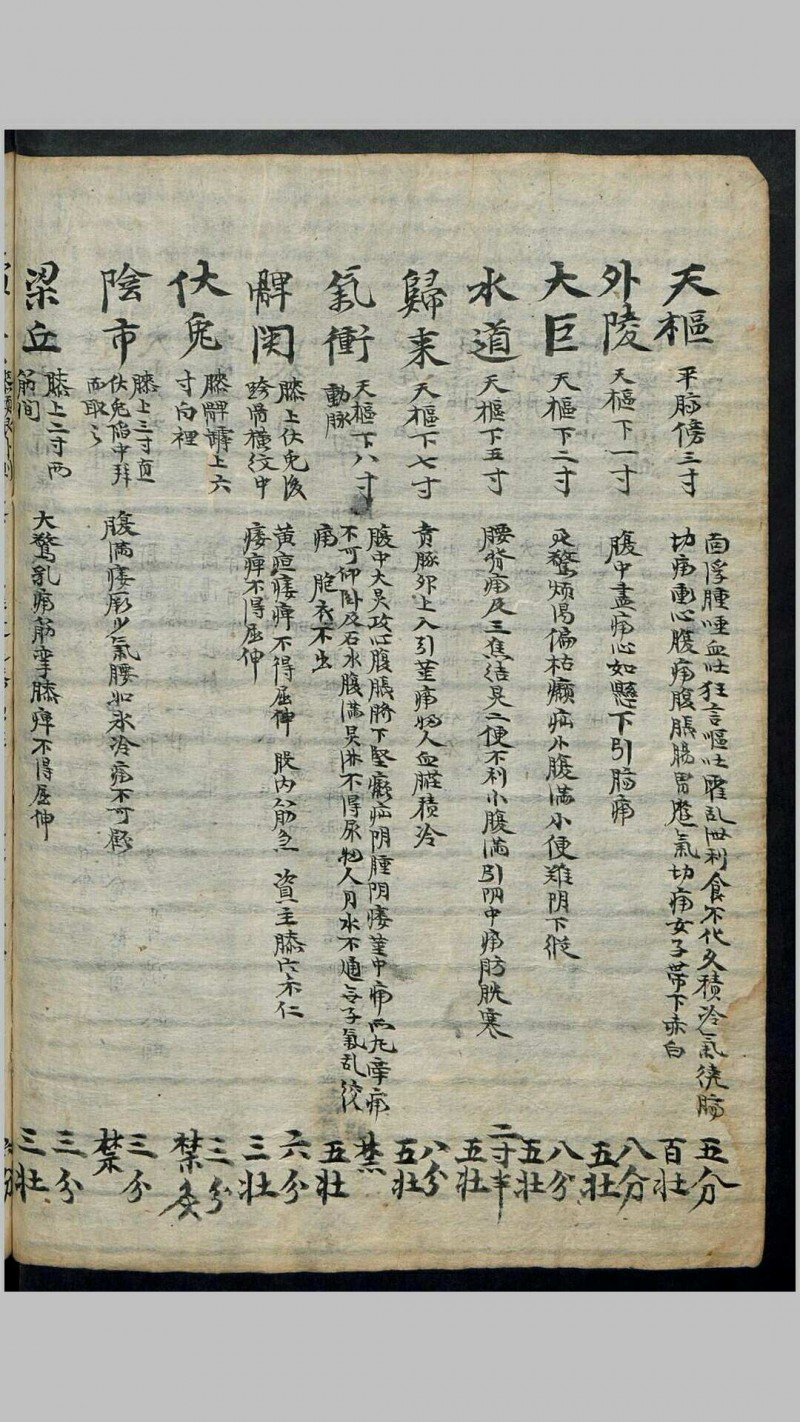 天樞
平臍傍三寸
面浮腫唾血吐狂言嘔吐霍乱泄利食不化久積冷氣繞臍
切痛衝心腹痛腹脹腸胃氣切痛女子帶下赤白
五分
百壮
外陵
天樞下一寸
腹中盡痛心如懸下引臍痛
八分
五壮
大巨
天樞下二寸
驚煩渴偏枯癩疝小腹滿小便难阴下縱
八分
五壮
水道
天樞下五寸
腰背痛及三焦结炅二便不利小腹滿引阴中痛肪胱寒
二寸半
五壮
歸来
天樞下七寸
賁豚卵上入引莖痛婦人血臓積冷
八分
五壮
氣衝
天樞下八寸
動脉
腹中大炅攻心腹脹臍下堅癩疝阴腫阴痿莖中痛两丸牽痛
不可仰卧及石水腹滿炅淋不得尿婦人月水不通無子氣乱絞
痛 胞衣不出
禁
五壮
髀関
膝上伏兎後
跨骨横紋中
黄疸痿痺不得屈伸 股内筋急
痿痺不得屈伸
六分
三壮
伏兎
膝髀罅上六
寸向裡
三分
禁灸
陰市
膝上三寸直
伏兎陷中拜
而取之
腹滿痿厥少氣腰如氷冷痛不可
三分
禁
梁丘
膝上二寸两
筋间
大驚乳痛筋挛膝痺不得屈伸
三分
三壮